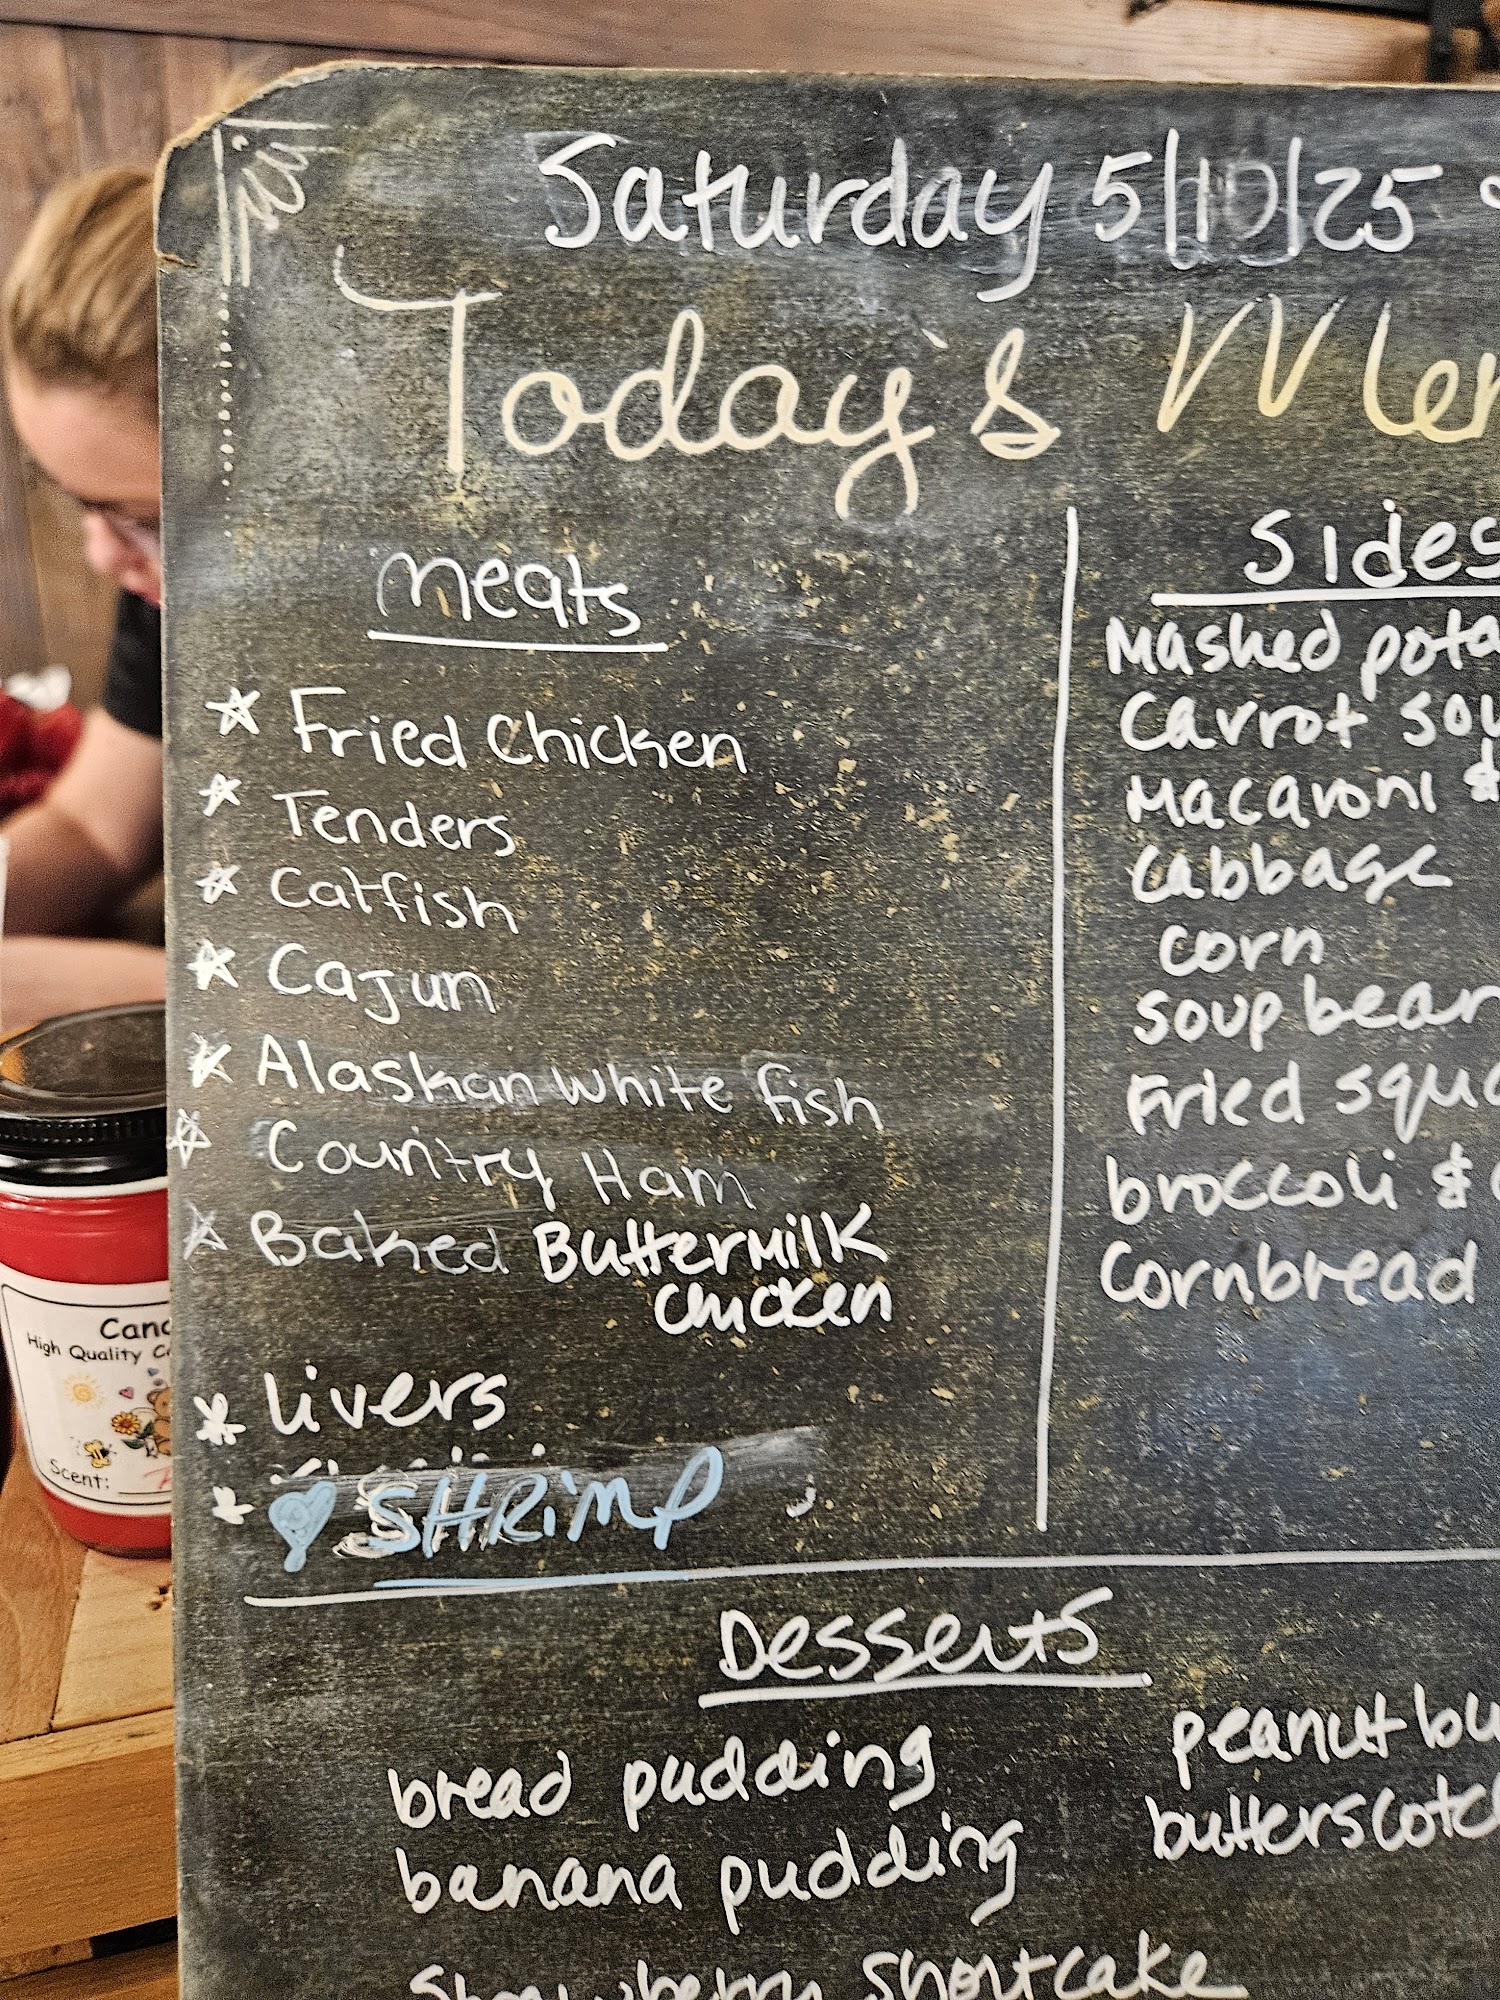 Saturday 5/10/25
Today's Men
Meats
Fried Chicken
Tenders
Catfish
Cajun
Alaskan White fish
Country Ham
Baked Buttermilk
Chicken
Livers
SHRiMP
Sides
Mashed pota
Carrot sou
Macaroni &
Cabbage
Corn
soup bean
Fried squa
broccoli &
Cornbread
Desserts
bread pudding
banana pudding
Strawberry Shortcake
peanut bu
butterscotc
Canc
High Quality C
Scent: